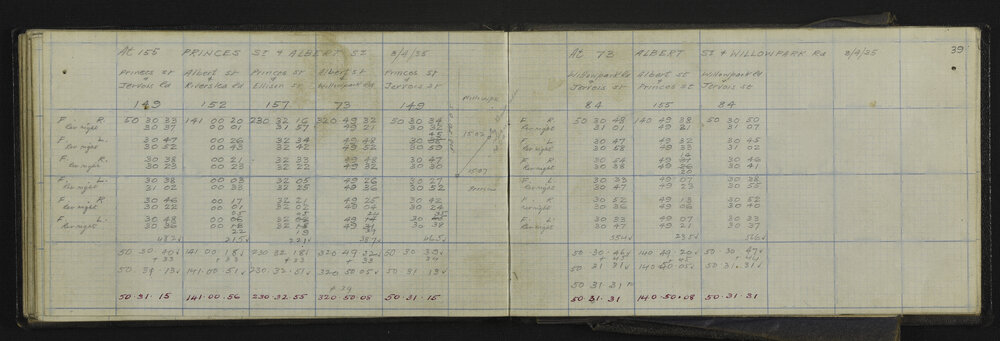 At 155 PRINCES St & ALBERT St. 3/4/35
Princes st & Jervois Rd Albert st & Riverslea Rd Princes st & Ellison st Albert st & Willowpark Rd Princes st & Jervois st
149 152 157 73 149
F. R. 50 30 33 141 00 20 230 32 16 320 49 32 50 30 34
Rev night 30 37 00 01 31 57 49 21
F. L. 30 47 00 26 32 34 49 48
Rev night 30 52 00 43 32 42 49 52 30 59
F. R. 30 38 00 21 32 33 49 48 30 47
Rev night 30 23 00 23 32 22 49 32 30 30
F. L. 30 38 00 03 32 05 49 26 30 27
Rev night 31 02 00 38 32 25 49 36 30 52
F. R 30 46 00 17 32 21 49 25 30 42
Rev night 30 22 00 01 32 02 49 04 30 24
F. L. 30 48
Rev night 30 36 30 38
215
50 30 40 141 00 18 230 32 18 320 49 32 50 30 39
+ 33 + 33 + 33 + 33
50. 31 13 141.00 51 230.32.51 320 50 05 50 31 13
50.31.15 141.00.56 230.32.55 320.50.08 50.31.15
1507
39
At 73 ALBERT St & WILLOWPARK Rd 3/4/35
Willowpark Rd & Jervois st Albert st & Princes st Willowpark Rd & Jervois st
84 155 84
F R 50 30 48 140 49 38 50 30 50
Rev night 31 01 49 21 31 07
F L 30 47 49 32 30 45
Rev night 30 58 49 33 31 02
R R 30 54 30 46
Rev night 30 38 30 41
F L 30 33 49 07 30 38
Rev night 30 47 49 23 30 55
F R 30 52 49 13 30 52
Rev night 30 36 49 06 30 40
F. L 30 33 49 07 30 33
Rev night 30 47 49 21 30 37
554 235 566
50.30.46 140 49 20 50 30.47
+ 45 + 45 + 44
50 31 31 140 50 05 50 31.31
50 31 31
50.31.31 140.50.08 50.31.31